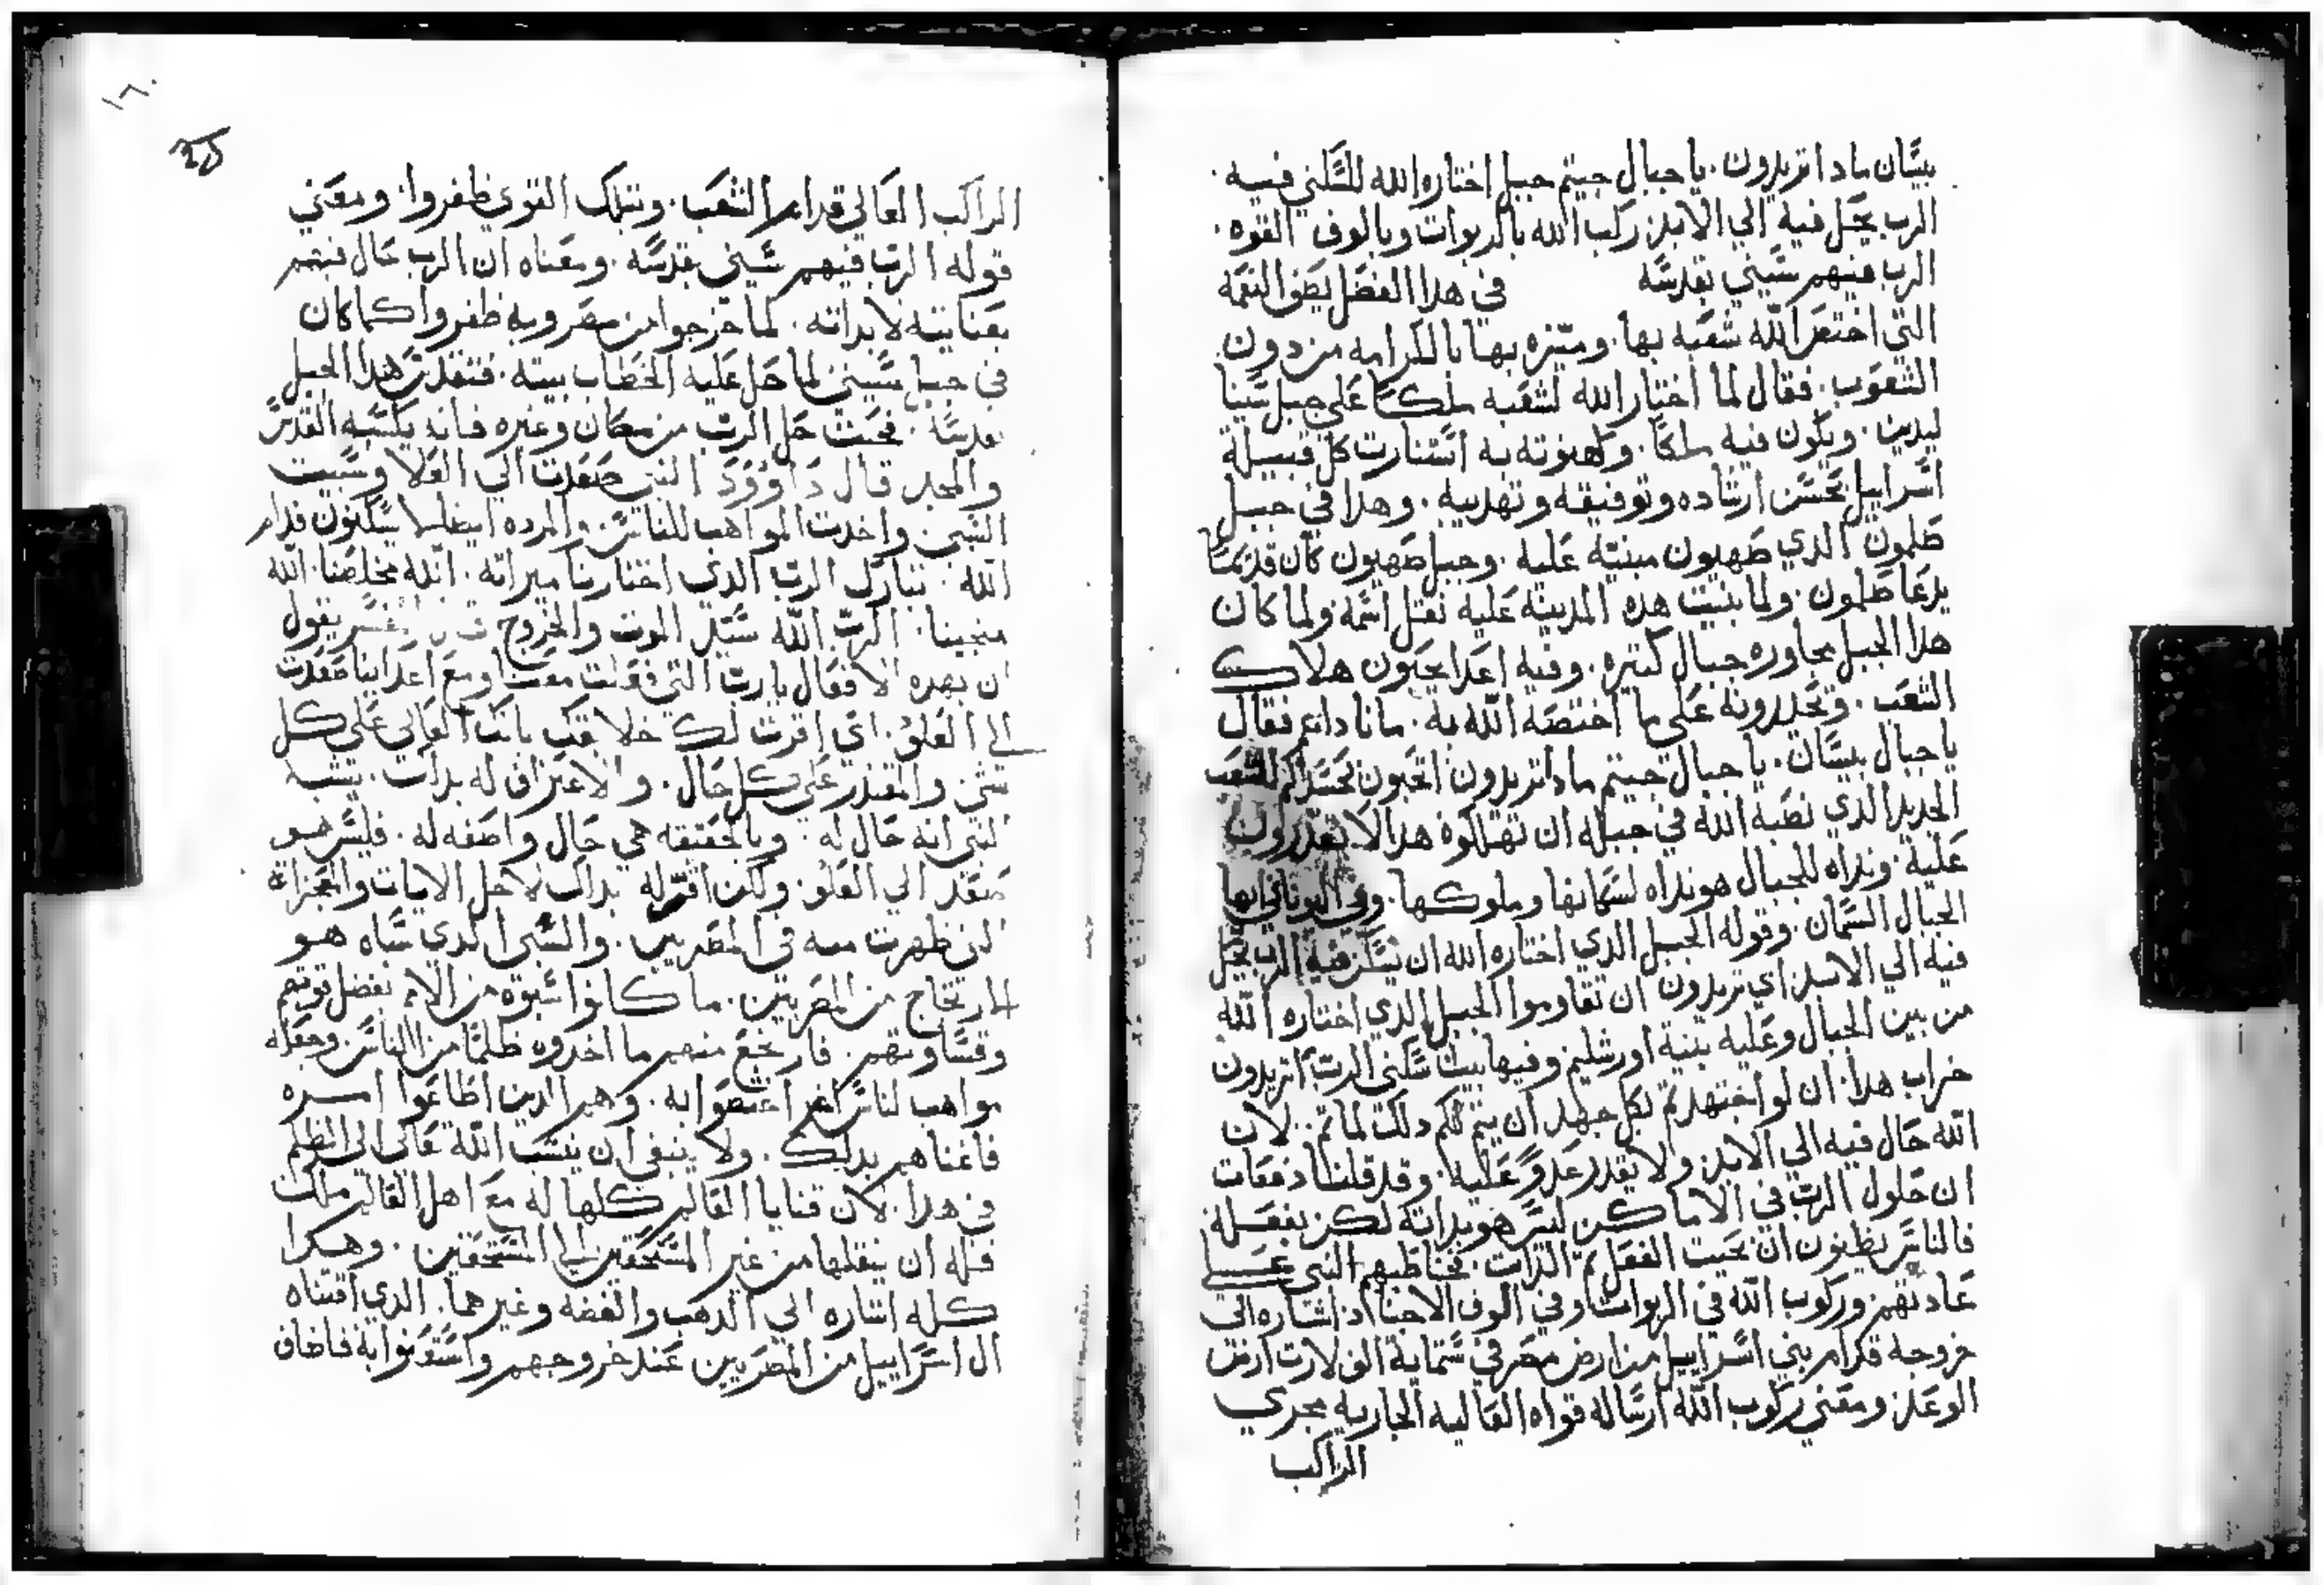 بيسان مادا تريدون. يا جبال جيتم جبل اختاره الله للسكني فيه.
الرب يحل فيه الي الابد. ركب الله بالربوات وبالوف القوه.
الرب فيهم سيني بقدسه في هدا الفصل يصف النعمه
التي اختص الله شعبه بها. وميزه بها بالكرامه من دون
الشعوب. فقال لما اختار الله لشعبه ملكا علي جبل سينا
ليدين. ويكون فيه ملكا. وكهنوته به استنارت كل قبيلة
اسراييل بحسن ارشاده وتوفيقه وتهديبه. وهدا في جبل
صلمون الدي صهيون مبنيه عليه. وجبل صهيون كان قديما
يدعا صلمون. ولما بنيت هده المدينه عليه نقل اسمه ولما كان
هدا الجبل مجاوره جبال كتيره. وفيه اعدا يحبون هلاك
الشعب. وتحدرونه علي ما اختصه الله به. مانا داعم فقال
يا جبال بيسان. يا جبال جيتم مادا تريدون اتحبون بحسدكم للشعب
الجديد الدي نصبه الله في جبله ان تهلكوه هدا لا تقدرون
عليه. ونداه للجبال هو نداه لسكانها وملوكها. وفي اليوناني ايها
الجبال السمان. وقوله الجبل الدي اختاره الله ان يسكن فيه الرب يحل
فيه الي الابد. اي تريدون ان تقاوموا الجبل الدي اختاره الله
من بين الجبال وعليه بنية اورشليم وفيها بيت سكني الرب اتريدون
خراب هدا. ان لو اجتهدتم بكل جهد ان يتم لكم دلك لما تم. لان
الله حال فيه الي الابد. ولا يقدر عدو عليه. وقد قلنا دفعات
ان حلول الرب في الاماكن ليس هو بداته لكن بفعله
فالناس يظنون ان بحيت الفعل تم الدات. فخاطبهم النبي علي
عادتهم. وركوب الله في الربوات وفي الوف الاحنا اد اشاره الي
خروجه قدام بني اسراييل من ارض مصر في ستماية الف لارت ارض
الوعد. ومعني ركوب الله ارساله قواه العاليه الجاريه مجري
الراكب
١٦٠
الراكب العالي قدام الشعب. وبتلك القوي ظفروا. ومعني
قوله الرب فيهم سيني بقدسه. ومعناه ان الرب حال فيهم
بعنايته لا بداته. لما خرجوا من مصر وبه ظفروا كما كان
في جبل سيني لما حل عليه الخطاب بيته. فتقدس هدا الجبل
بقدسه. فحيت حل الرب من مكان وغيره فانه يكسبه القدس
والمجد. قال داوود النبي صعدت الي العلا وسبيت
السبي واخدت المواهب للناس. والمرده ايضا يسكنون قدام
الله. تبارك الرب الدي اختارنا ميراته. الله مخلصنا. الله
منجينا. الرب الله سيد الموت والخروج يقول
ان بهده الافعال يارب التي فعلت معنا ومع اعداينا صعدت
الي العلو. اي اقرت لك خلايقك بانك العالي علي كل
شي والمقتدر علي كل حال. والاعتراف له بدلك. يشبه
لشي انه حال له. وبالحقيقه هي حال واصفه له. فليس هو
صعد الي العلو. ولكن اقر له بدلك لاجل الايات والمعجزات
التي ظهرت منه في المصريين. والسبي الدي سباه هو
الارتجاع من المصريين. ما كانوا سبوه من الامم بفضل قوتهم
وقساوتهم. فارتجع منهم ما اخدوه ظلما من الناس. وجعله
مواهب لناس اخر اغتصوا به. وهم الدين اطاعوا امره
فاغناهم بدلك. ولا ينبغي ان ينسب الله تعالي الي الظلم
في هدا. لان قنايا العالم كلها له مع اهل العالم ملك
فله ان ينقلها من غير المستحقين الي المستحقين. وهكدا
كله اشاره الي الدهب والفضه وغيرهما. الدي اقتناه
ال اسراييل من المصريين عند خروجهم واستغنوا به فاضاف